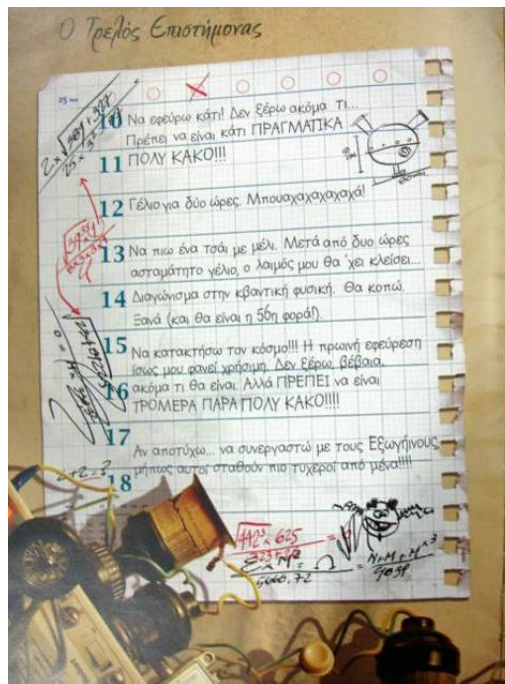 Ο Τρελός Επιστήμονας
10 Να εφεύρω κάτι! Δεν ξέρω ακόμα τι...
Πρέπει να είναι κάτι ΠΡΑΓΜΑΤΙΚΑ
11 ΠΟΛΥ ΚΑΚΟ!!!
12 Γέλιο για δύο ώρες. Μπουαχαχαχαχαχά!
13 Να πιω ένα τσάι με μέλι. Μετά από δυο ώρες
ασταμάτητο γέλιο, ο λαιμός μου θα 'χει κλείσει...
14 Διαγώνισμα στην κβαντική φυσική. Θα κοπώ.
Ξανά (και θα είναι η 56η φορά!).
15 Να κατακτήσω τον κόσμο!!! Η πρωινή εφεύρεση
ίσως μου φανεί χρήσιμη. Δεν ξέρω, βέβαια,
16 ακόμα τι θα είναι. Αλλά ΠΡΕΠΕΙ να είναι
ΤΡΟΜΕΡΑ ΠΑΡΑ ΠΟΛΥ ΚΑΚΟ!!!!
17
Αν αποτύχω... να συνεργαστώ με τους Εξωγήινους,
μήπως αυτοί σταθούν πιο τυχεροί από μένα!!!!
2+2=?
18
√442³ × 625
5660,72